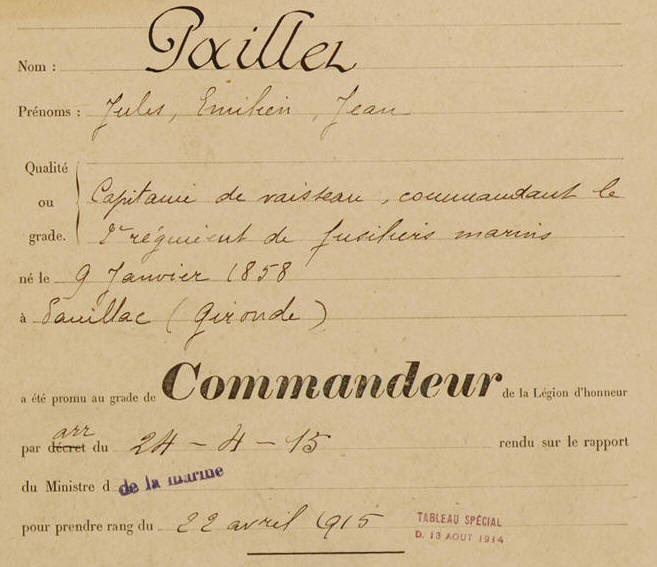 Nom : Paillet
Prénoms : Jules, Emilien, Jean
Qualité
ou
grade.
Capitaine de vaisseau, commandant le
2e régiment de fusiliers marins
né le 9 Janvier 1858
à Pauillac (Gironde)
a été promu au grade de Commandeur de la Légion d'honneur
arr
par décret du 24 - 4 - 15 rendu sur le rapport
du Ministre d de la marine
pour prendre rang du 22 avril 1915
TABLEAU SPÉCIAL
D. 13 AOUT 1914